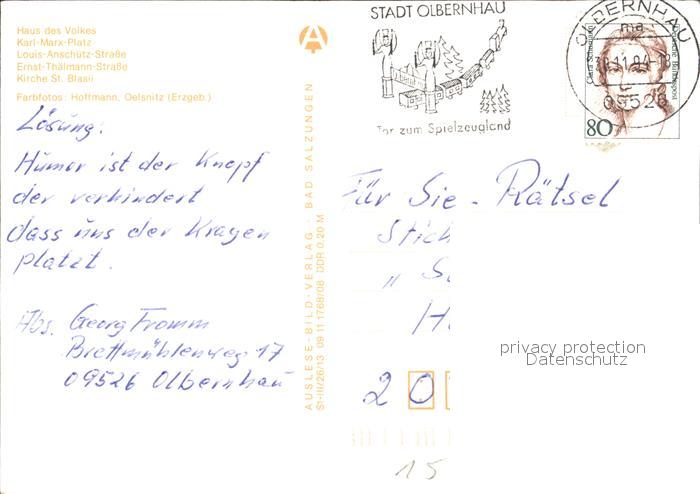 Haus des Volkes
Karl-Marx-Platz
Louis-Anschütz-Straße
Ernst-Thälmann-Straße
Kirche St. Blasii
Farbfotos: Hoffmann, Oelsnitz (Erzgeb.)
Lösung:
Humor ist der Knopf
der verhindert
dass uns der Kragen
platzt.
Abs. Georg Fromm
Brettmühlenweg 17
09526 Olbernhau
AUSLESE-BILD-VERLAG · BAD SALZUNGEN
S1-III/26/13 09 11 1768/08 DDR 0,20 M
STADT OLBERNHAU
Tor zum Spielzeugland
OLBERNHAU
ma
11.94-18
09526
Clara Schumann
Deutsche Bundespost
80
Für Sie - Rätsel
Stich
" S
H
20
privacy protection
Datenschutz
15